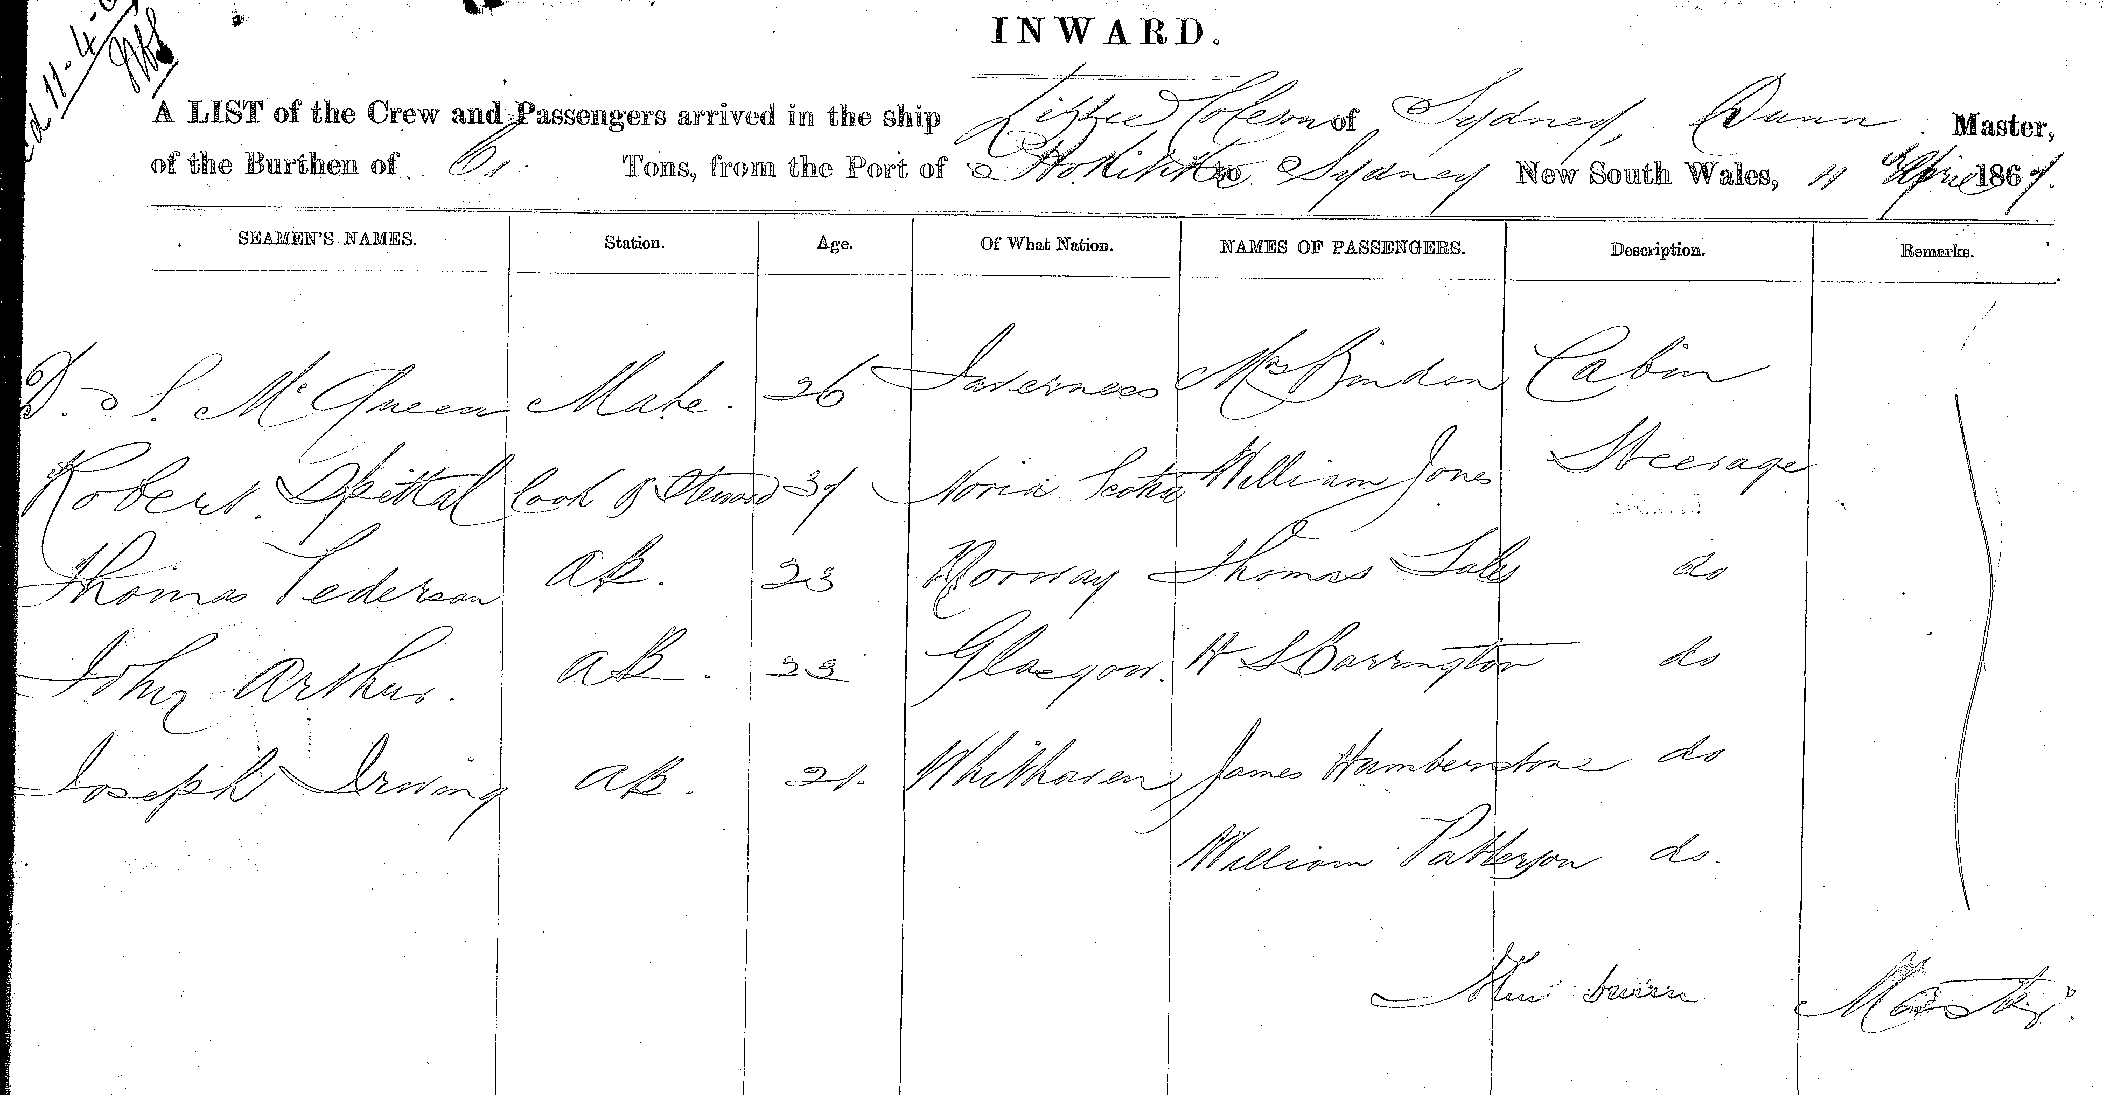 11-4-
INWARD.
A LIST of the Crew and Passengers arrived in the ship Lizzie Coleson of Sydney, Dunn Master,
of the Burthen of Tons, from the Port of Hokitika to Sydney New South Wales, 11 April 1867.
SEAMEN'S NAMES. Station. Age. Of What Nation. NAMES OF PASSENGERS. Description. Remarks.
D. S. McQueen Mate. 26 Inverness Mrs Bindon Cabin
Robert Spittal Cook & Steward 37 Nova Scotia William Jones Steerage
Thomas Pederson AB. 23 Norway Thomas do
John Arthur. AB. 23 Glasgow. H S Barrington do
Joseph Irwing AB. 21. Whithaven James Humberstone do
William Patterson do.
Master.